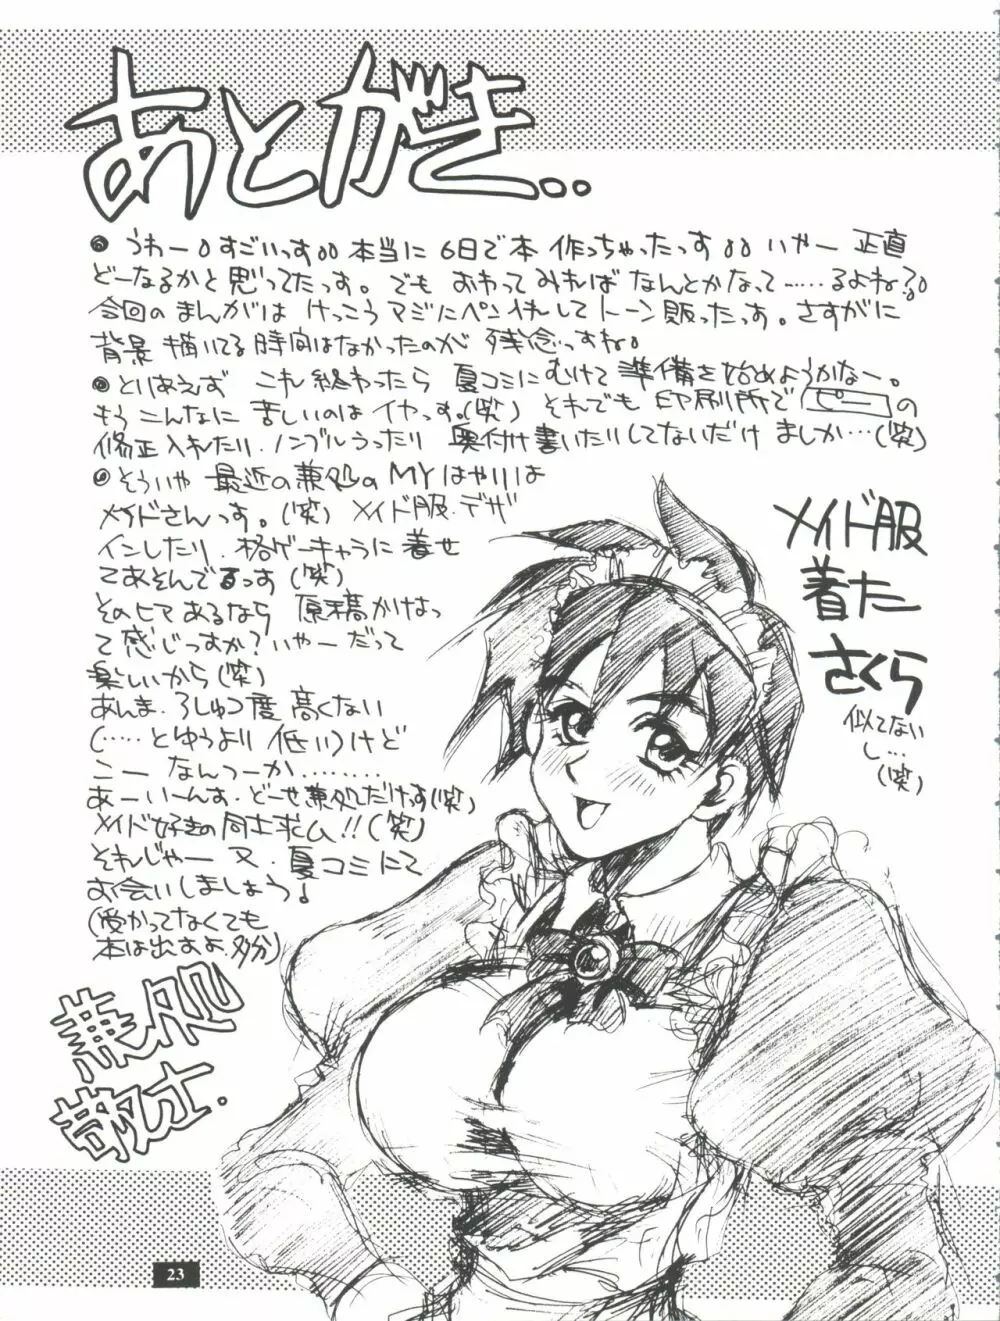 あとがき..
◎ うわー。すごいっす。。本当に 6日で本 作っちゃったっす。。いやー 正直
どーなるかと思ってたっす。でも おわってみれば なんとかなって……るよね?。
今回の まんがは けっこう マジにペン入れして トーン 貼ったっす。さすがに
背景 描いてる 時間はなかったのが 残念っすね。
◎ とりあえず これ終わったら 夏コミにむけて 準備を始めようかなー。
もう こんなに 苦しいのは イヤっす。(笑) それでも 印刷所で ピー の
修正入れたり、ノンブルうったり 奥付け書いたりしてないだけ ましか…(笑)
◎ そういや 最近の兼処の MYはやりは
メイドさんっす。(笑) メイド服、デザ
インしたり、格ゲーキャラに 着せ
てあそんでるっす(笑)
そのヒマ あるなら 原稿かけな
って感じっすか?いやーだって
楽しいから(笑)
あんま、ろしゅつ度 高くない
(……とゆうより 低い)けど
こー なんつーか………
あーいーんす、どーせ兼処だけっす(笑)
メイド好きの 同士求ム!!(笑)
それじゃー 又、夏コミにて
お会いしましょう!
(受かってなくても
本は出すよ、多分)
兼処
敬士.
メイド服
着た
さくら
似てない
し…
(笑)
23